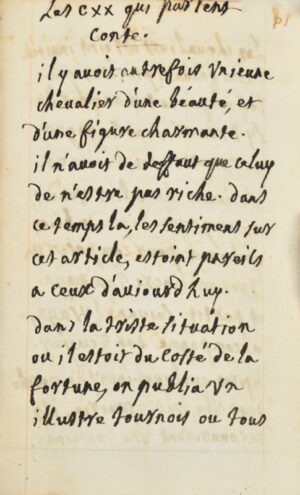 Les cxx qui parlent
Conte.
il y avoit autrefois vn ieune
chevalier d'une béauté, et
d'une figure charmante.
il n'avoit de deffaut que celuy
de n'estre pas riche. dans
ce temps la, les sentiment sur
cet article, estoint pareils
a ceux d'auiourdhuy.
dans la triste situation
ou il estoit du costé de la
fortune, on publia vn
illustre tournois ou tous